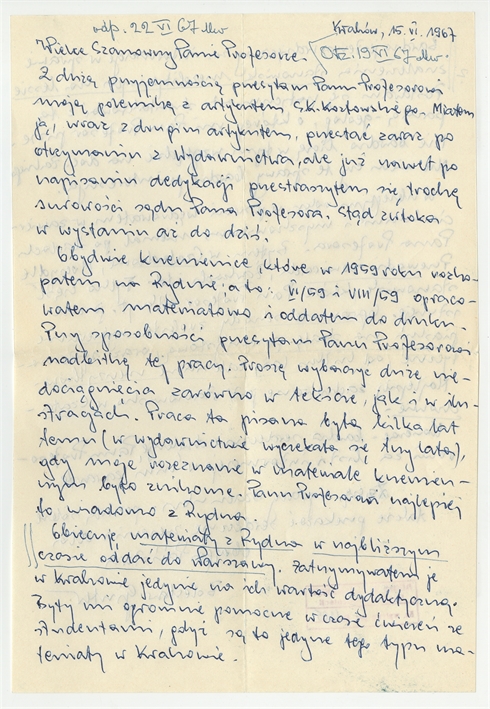 odp. 22 VI 67 Mw
Kraków, 15. VI. 1967
Wielce Szanowny Panie Profesorze. Otz. 19 VI 67 Mw.
Z dużą przyjemnością przesyłam Panu Profesorowi
moją polemikę z artykułem S.K. Kozłowskiego. Miałem
ją, wraz z drugim artykułem, przesłać zaraz po
otrzymaniu z Wydawnictwa, ale już nawet po
napisaniu dedykacji przestraszyłem się trochę
surowości sądu Pana Profesora. Stąd zwłoka
w wysłaniu aż do dziś.
Obydwie krzemienice, które w 1959 roku rozko-
pałem na Rydnie, a to: VI/59 i VIII/59 opraco-
wałem materiałowo i oddałem do druku.
Przy sposobności przesyłam Panu Profesorowi
nadbitkę tej pracy. Proszę wybaczyć duże nie-
dociągnięcia zarówno w tekście, jak i w ilu-
stracjach. Praca ta pisana była kilka lat
temu (w wydawnictwie wyczekała się trzy lata),
gdy moje rozeznanie w materiale krzemien-
nym było znikome. Panu Profesorowi najlepiej
to wiadomo z Rydna.
Obiecuję materiały z Rydna w najbliższym
czasie oddać do Warszawy. Zatrzymywałem je
w Krakowie jedynie dla ich wartości dydaktycznej.
Były mi ogromnie pomocne w czasie ćwiczeń ze
studentami, gdyż są to jedyne tego typu ma-
teriały w Krakowie.